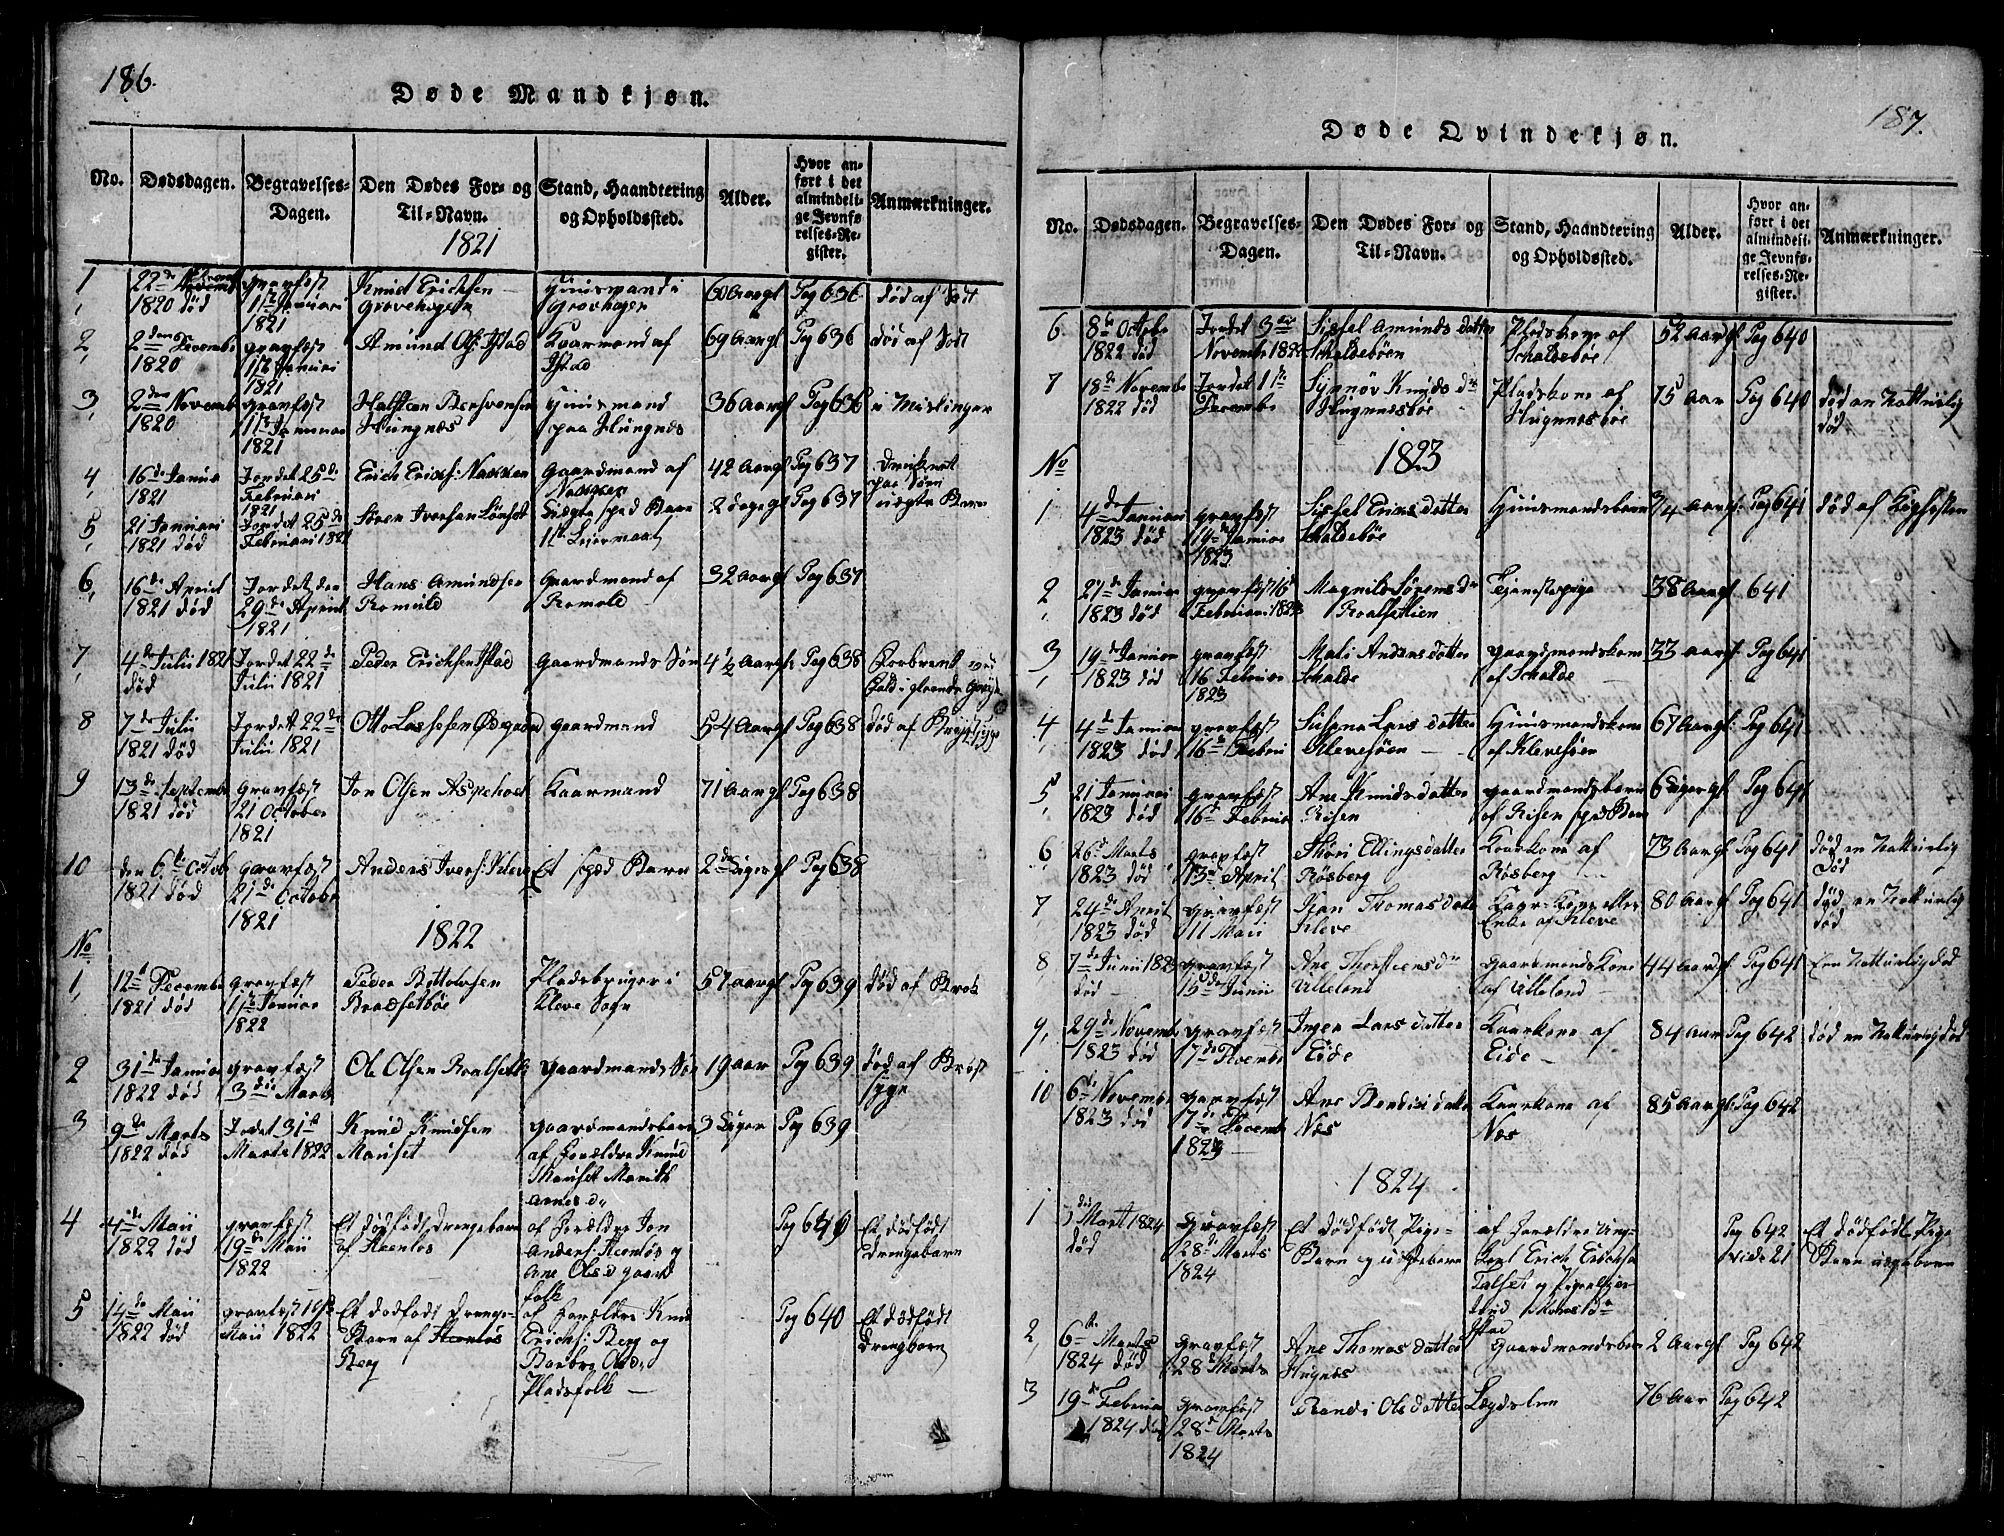 186.
Døde Mandkjøn.
No. Dødsdagen. Begravelses-Dagen. Den Dødes For- og Til-Navn. Stand, Haandtering og Opholdssted. Alder. Hvor anført i det almindelige Jevnførelses-Register. Anmærkninger.
1821
1, 22de 1820 død gravfæst 11te Januari 1821 Knud Erichsen Grovehagen Huusmand i Grovhagen 60 Aar gl Pag 636 død af Sott
2, 2den Decembr 1820 gravfæst 11te Januari 1821 Amund Ols: Istad Kaarmand af Istad 69 Aar gl Pag 636 død af Sott
3, 2den Novemb 1820 gravfæst 11te Januar 1821 Halsteen Bersvensen Hungnæs Huusmand paa Hungnæs 36 Aar gl Pag 636 i Mislinger
4, 16de Janua 1821 Jordet 25de Februari 1821 Erich Erichs: Naasen Gaardmand af 42 Aar gl Pag 637 Druknet paa Søen
5, 21 Januari 1821 død Jordet 25de Februari 1821 Søren Iversen Lønset Uægte spæd Barn 1ste Leiermaal 2 dage gl Pag 637 uægte Barn
6, 16de April 1821 død Jordet den 29de April 1821 Hans Amundsen Romuld Gaardmand af Romuld 32 Aar gl Pag 637
7, 4de Julii 1821 død Jordet 22de Julii 1821 Peder Erichsen Istad Gaardmands Søn 4½ Aar gl: Pag 638 Forbrent ved Fald i gloende
8 7de Julii 1821 død Jordet 22de Julii 1821 Otto Lassesen Ødegaard Gaardmand 54 Aar gl Pag 638 død af Brystsyge
9 13de Septemb 1821 død gravfæst 21 October 1821 Jon Olsen Aspehoel Kaarmand 71 Aar gl Pag 638
10 den 6te Octob 1821 død gravfæst 21de Octobr 1821 Anders Ivers: Kleve Et spæd Barn 2de Uger gl Pag 638
1822
No
1, 12te Decembr 1821 død gravfæst 11te Januar 1822 Peder Bottolvsen Brædsetbøe Pladsbruger i Kleve Sogn 57 aar gl Pag 639 død af Brok
2 31de Januar 1822 død gravfæst 3die Marts Ole Olsen Roalset Gaardmands Søn 19 aar Pag 639 død af Bryst syge
3 9de Marts 1822 død Jordet 31te Marts 1822 Knud Knudsen Mauset Gaardmandsbarn af Forældre Knud Mauset Marith Arnesd: 3 Uger Pag 639
4 4de Maii 1822 død gravfæst 19de Maii 1822 Et dødfødt Drengebarn af Steenløs af Forældre Jon Anders: Steenløs og Ane Olsd gaardfolk Pag 649 Et dødfødt Drengebarn
5 14de Maii 1822 død gravfæst Maii 1822 Et dødfødt Drenge-Barn af Steenløs Berg af Forældre Knud Erichs: Berg og Barbro Olsd: Pladsfolk — Pag 640 Et dødfødt Drengbarn
187.
Døde Qvindekjøn.
No. Dødsdagen. Begravelses-Dagen. Den Dødes For- og Til-Navn. Stand, Haandtering og Opholdssted. Alder. Hvor anført i det almindelige Jevnførelses-Register. Anmærkninger.
6 8de Octobr 1822 død Jordet 3die Novembr 1822 Sissel Amunds datter Schaldebøen Pladskone af Schaldebøe 52 Aar gl Pag 640
7 18de Novembr 1822 død Jordet 1ste Decembr Synnøv Knuds dr Hugnnesbøe Pladskone af Hugnnesbøe 75 Aar Pag 640 død en Naturlig død
1823
No
1, 4de Januari 1823 død gravfæst 14de Januar 1823 Sissel Erics datter Schaldebøe Huusmandsbarn 3/4 Aar gl: Pag 641 død af Kighosten
2, 27de Januar 1823 død gravfæst 16de Februari 1823 Magnild Sørens dr Roalsetlien Tjenestepige 38 Aar gl 641
3, 19de Januar 1823 død gravfæst 16 Februar 1823 Mali Anders datter Schalde gaardmandskone af Schalde — 33 aar gl: Pag 641
4, 4de Januar 1823 død gravfæst 16de Februar Susana Lars datter Klevesøen — Huusmandskone af Klevesøen 67 Aar gl: Pag 641
5, 21 Januari 1823 død gravfæst 16de Februar Ane Knuds datter Risen gaardmandsbarn af Risen spæd Barn 6 Uger gl Pag 641
6, 26de Marts 1823 død gravfæst 13de April Thøri Ellingsdatter Røsberg Kaarkone af Røsberg — 73 Aar gl Pag 641 død en Naturlig Død
7 24de April 1823 død gravfæst 11 Maii Thomas datter Kleve Kaar-Kone eller Enke af Kleve 80 Aar gl Pag 641 død en Naturlig død
8 7de Junii 1823 død — gravfæst 15de Junii Ane Thorsteens dr Ulleland gaardmands Kone af Ulleland — 44 aar gl Pag 641 Een Naturlig død
9, 29de Novembr 1823 død gravfæst 7de Decembr Inger Lars datter Eide Kaarkone af Eide — 84 aar Pag 642 død en Naturlig død
10 6te Novembr 1823 død gravfæst 7de Decemb 1823 — Ane Bendix datter Næs Kaarkone af Næs 85 Aar gl: Pag 642
1824
1 Mart 1824 død gravfæst 28de Marts 1824 Et dødfødt Pige-Barn og uægtebarn af Forældre Ung-Karl Erich Erichsen Talset og Pige Istad Pag 642 vide 21 Et dødfødt Pige Barn uægtebarn
2, 6te Marts 1824 død gravfæst 28de Marts Ane Thomas datter Hugnæs Gaardmandsbarn 2 Aar gl Pag 642
3 19de Februar 1824 død gravfæst 28de Marts 1824 Randi Ols datter Lægdslem 76 Aar Pag 642